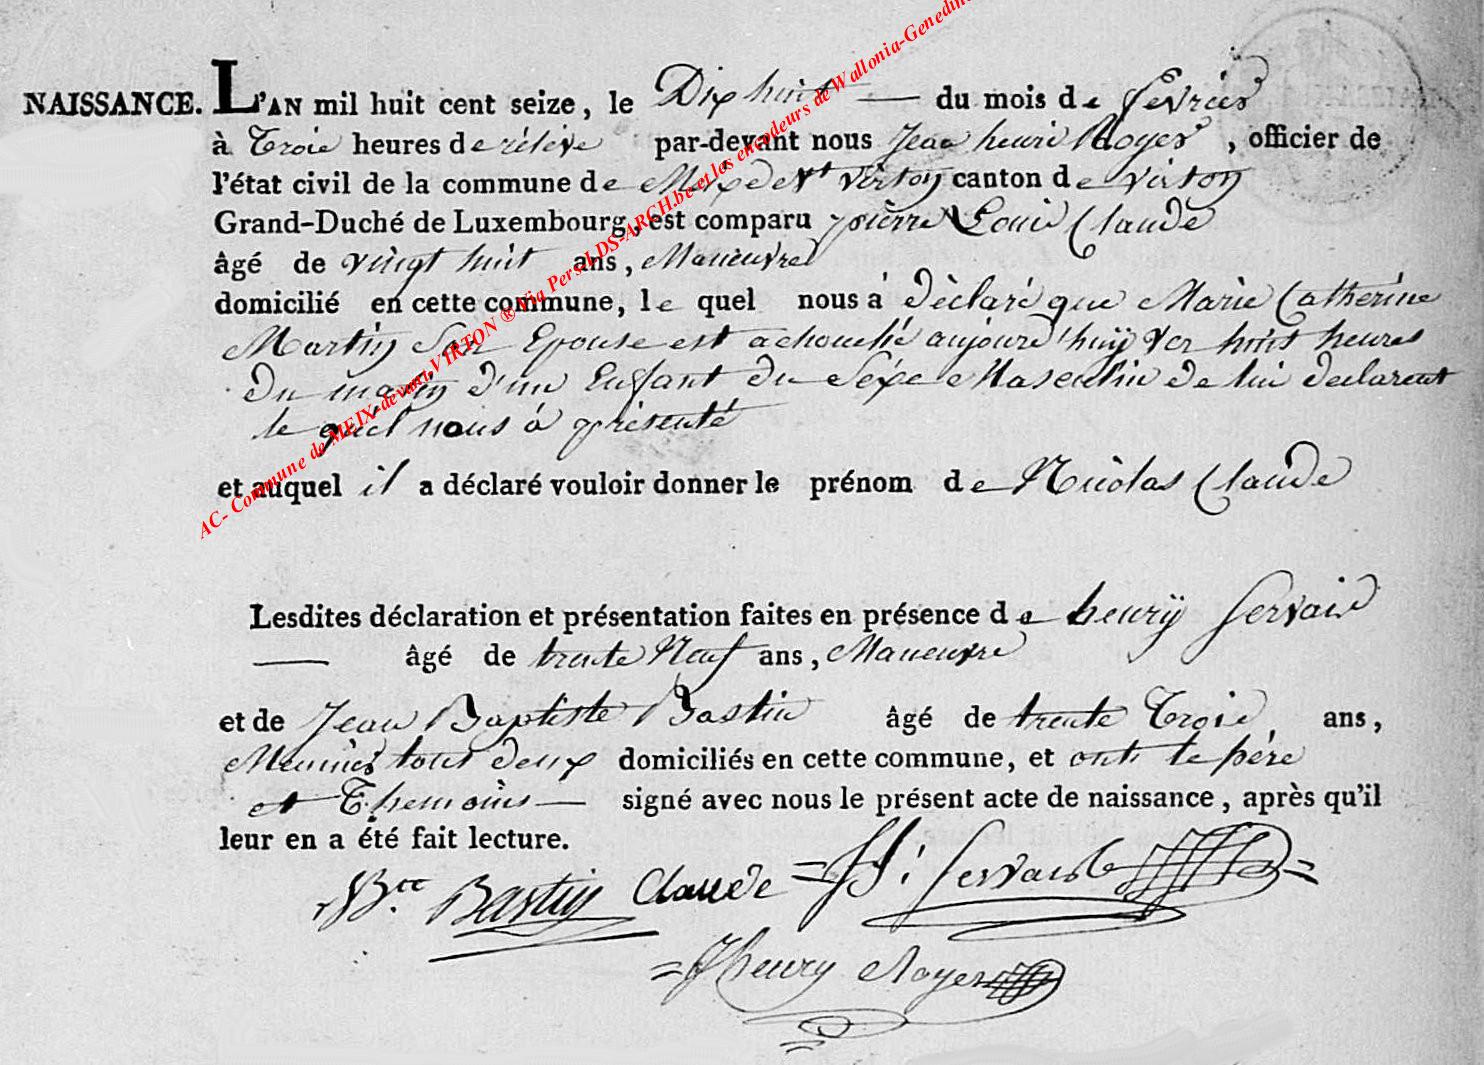 NAISSANCE. L'AN mil huit cent seize, le Dix huit — du mois de fevrier
à Trois heures de rélévé par-devant nous Jean henri Royer, officier de
l'état civil de la commune de Meix devt virton canton de virton
Grand-Duché de Luxembourg, est comparu pierre Louis Claude
âgé de vingt huit ans, Maneuvre
domicilié en cette commune, le quel nous à dèclaré que Marie Catherine
Martin Son Epouse est achouché aujourd'huÿ ver huit heures
du matin d'un Enfant du Séxe Masculin de lui declarent
le quel nous à présenté
et auquel il a déclaré vouloir donner le prénom de Nicolas Claude
Lesdites déclaration et présentation faites en présence de henrÿ Servais
— âgé de trente Neuf ans, Maneuvre
et de Jean Baptiste Bastin âgé de trente Trois ans,
Meunier tous deux domiciliés en cette commune, et ont le père
et Themoins — signé avec nous le présent acte de naissance, après qu'il
leur en a été fait lecture.
JBte Bastin Claude = H : servais =
= Jhenry Royer
AC- Commune de MEIX-devant-VIRTON ® Via Persel DS-ARCH.be et les encodeurs de Wallonia-Genedin